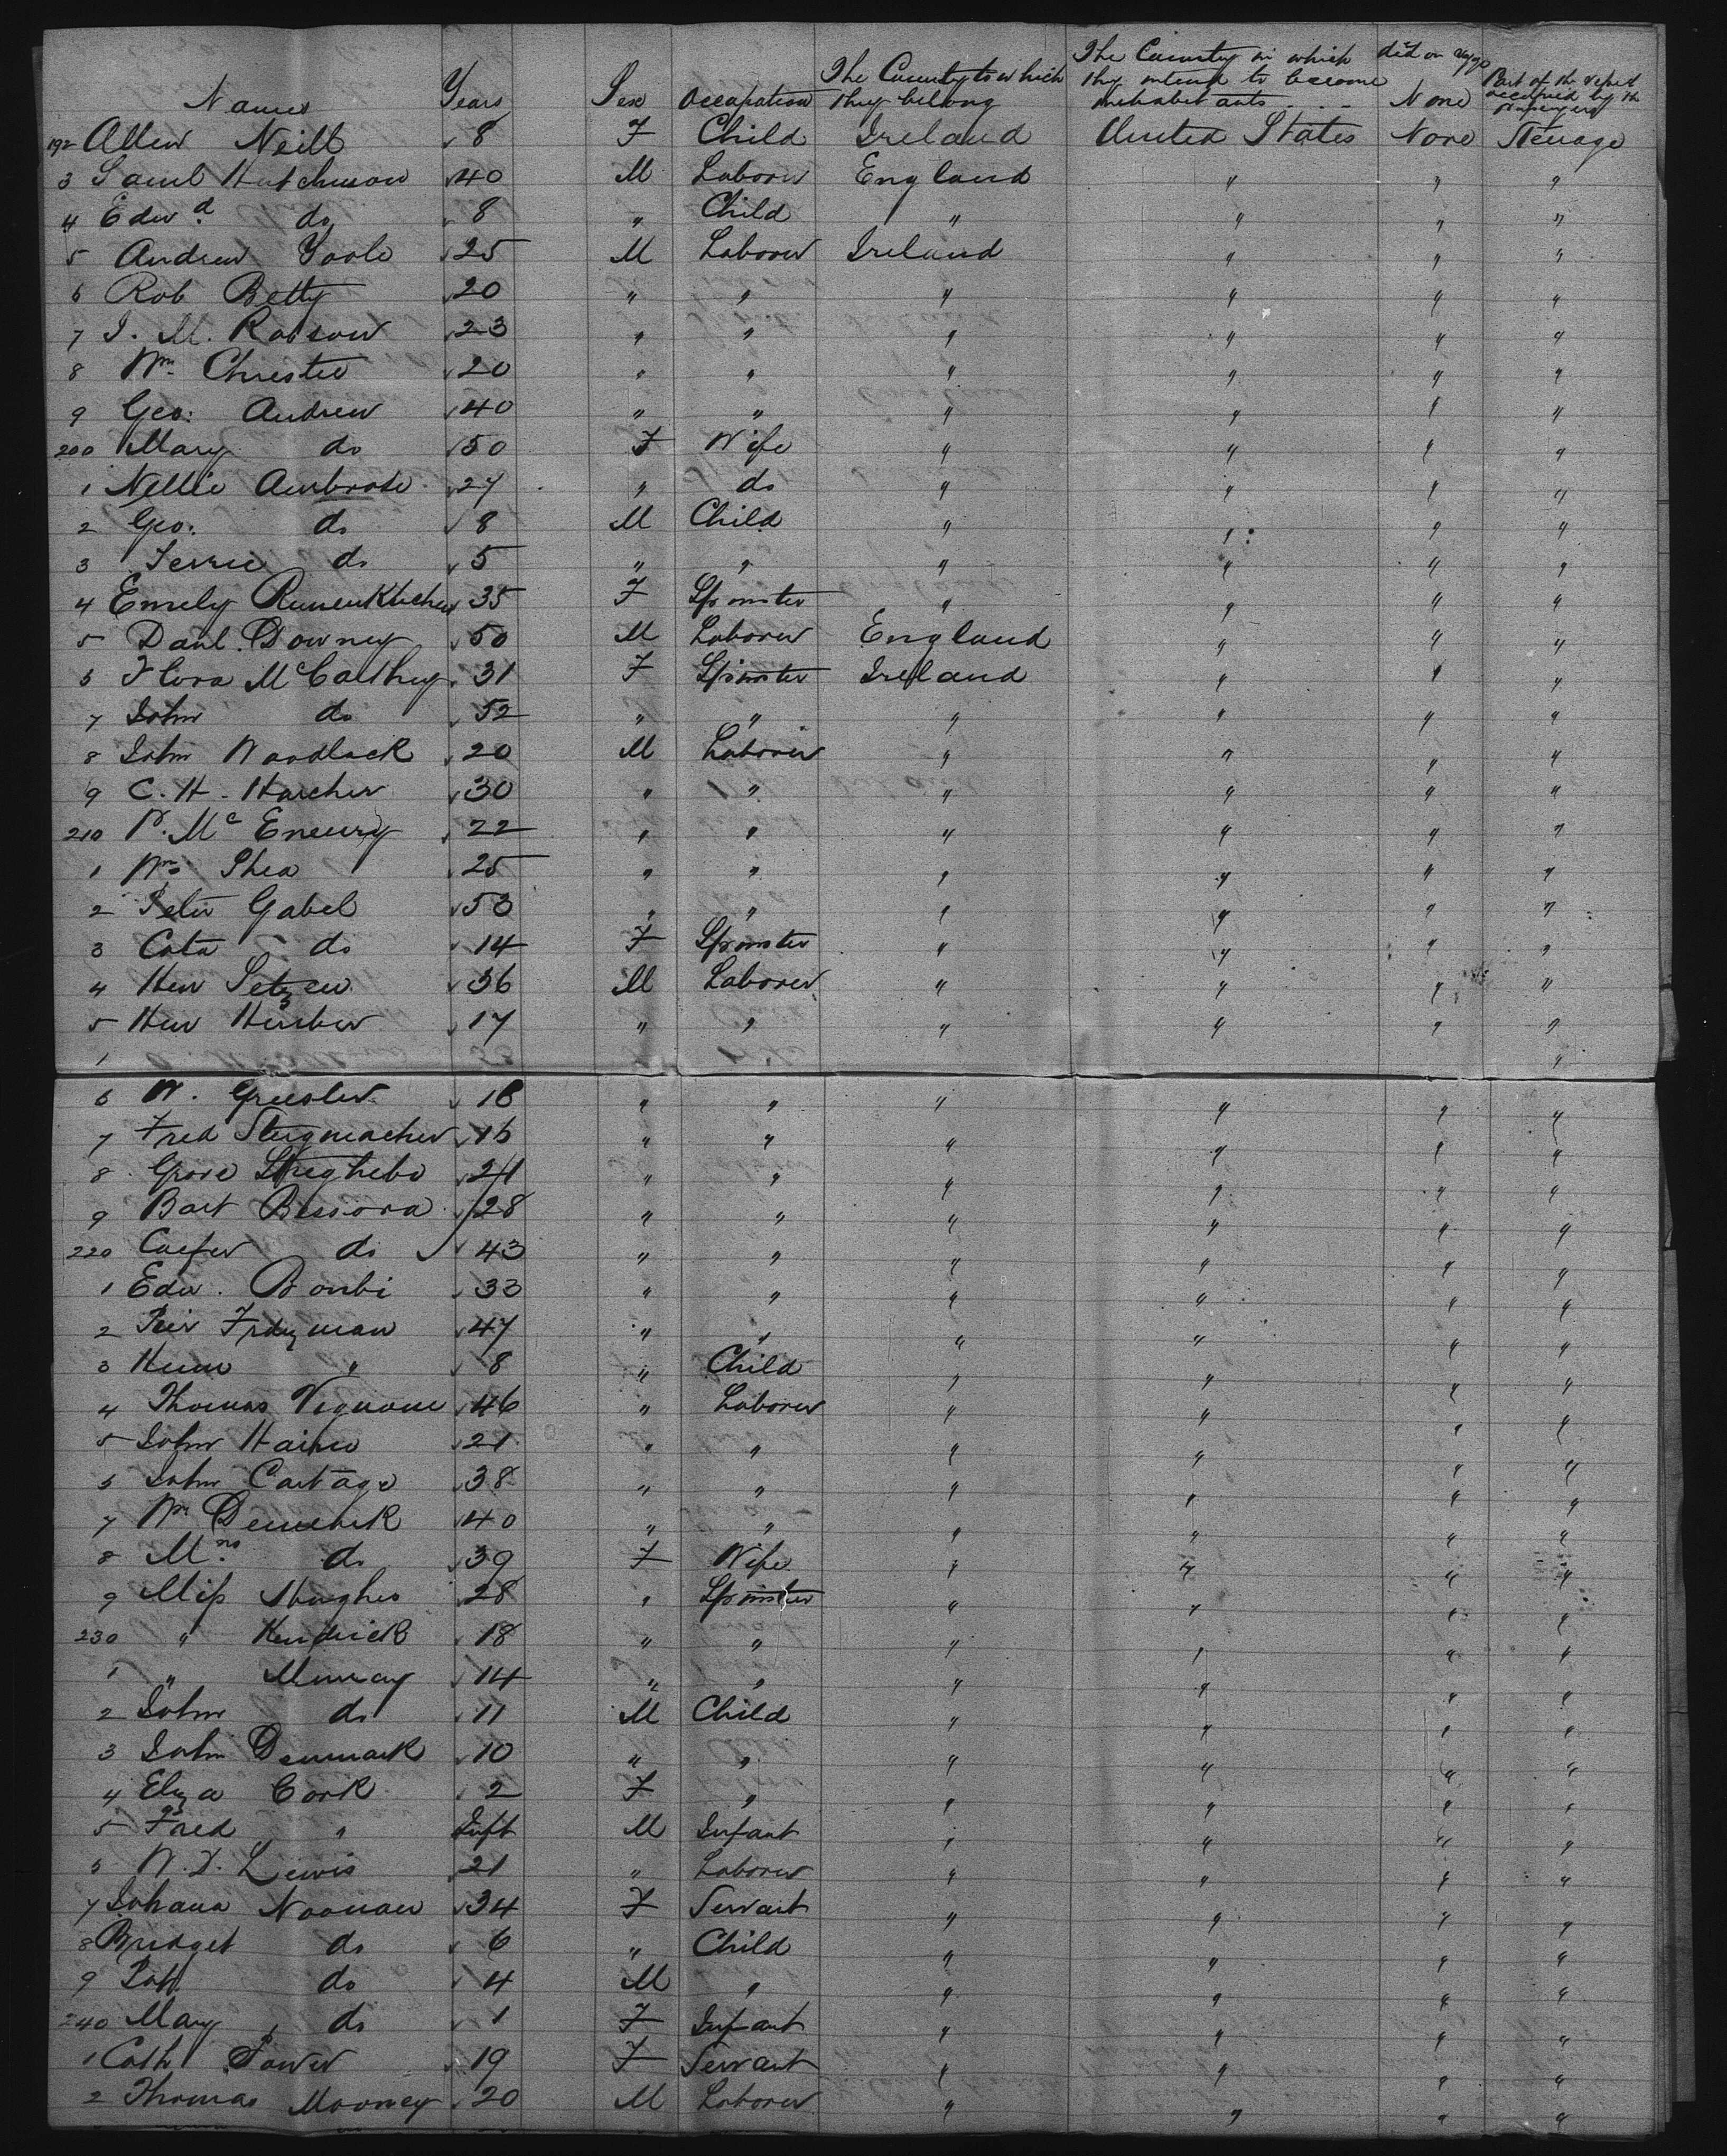 Names Years Sex Occupation The Country to which they belong The Country in which they intend to become inhabitants died on None Part of the vessel occupied by the
192 Allen Neill 8 F Child Ireland United States None Steerage
3 Saml Hutchinson 40 M Laborer England " " "
4 Edwd do 8 " Child " " " "
5 Andrew Toole 25 M Laborer Ireland " " "
6 Rob Betty 20 " " " " " "
7 J. M. Robson 23 " " " " " "
8 Wm Christie 20 " " " " " "
9 Geo: Andrew 40 " " " " " "
200 Mary do 50 F Wife " " " "
1 Nellie Ambrose 27 " do " " " "
2 Geo. do 8 M Child " " " "
3 do 5 " " " " " "
4 Emely 35 F Spinster " " " "
5 Danl. Downey 50 M Laborer England " " "
6 Flora McCalthy 31 F Spinster Ireland " " "
7 John do 52 " " " " " "
8 John Woodlock 20 M Laborer " " " "
9 C. H. Harcher 30 " " " " " "
210 P. Mc Eneury 22 " " " " " "
1 Wm Shea 25 " " " " " "
2 Peter Gabel 53 " " " " " "
3 Cata do 14 F Spinster " " " "
4 Hen Setzen 36 M Laborer " " " "
5 Hen 17 " " " " " "
6 W. 18 " " " " " "
7 Fred Stegmacher 16 " " " " " "
8 21 " " " " " "
9 Bart Bessora 28 " " " " " "
220 do 43 " " " " " "
1 Edw. Bonbi 33 " " " " " "
2 47 " " " " " "
3 " 8 " Child " " " "
4 Thomas Vignone 46 " Laborer " " " "
5 John 21 " " " " " "
6 John Cartage 38 " " " " " "
7 Wm 40 " " " " " "
8 Mrs do 39 F Wife " " " "
9 Miss Hughes 28 " Spinster " " " "
230 " Kendrick 18 " " " " " "
1 " Murray 14 " " " " " "
2 John do 11 M Child " " " "
3 John Denmark 10 " " " " " "
4 Eliza Cork 2 F " " " " "
5 Fred " Inft M Infant " " " "
6 W. D. Lewis 21 " Laborer " " " "
7 Johana Noonan 34 F Servant " " " "
8 Bridget do 6 " Child " " " "
9 do 4 M " " " " "
240 Mary do 1 F Infant " " " "
1 Cath Power 19 F Servant " " " "
2 Thomas Mooney 20 M Laborer " " " "